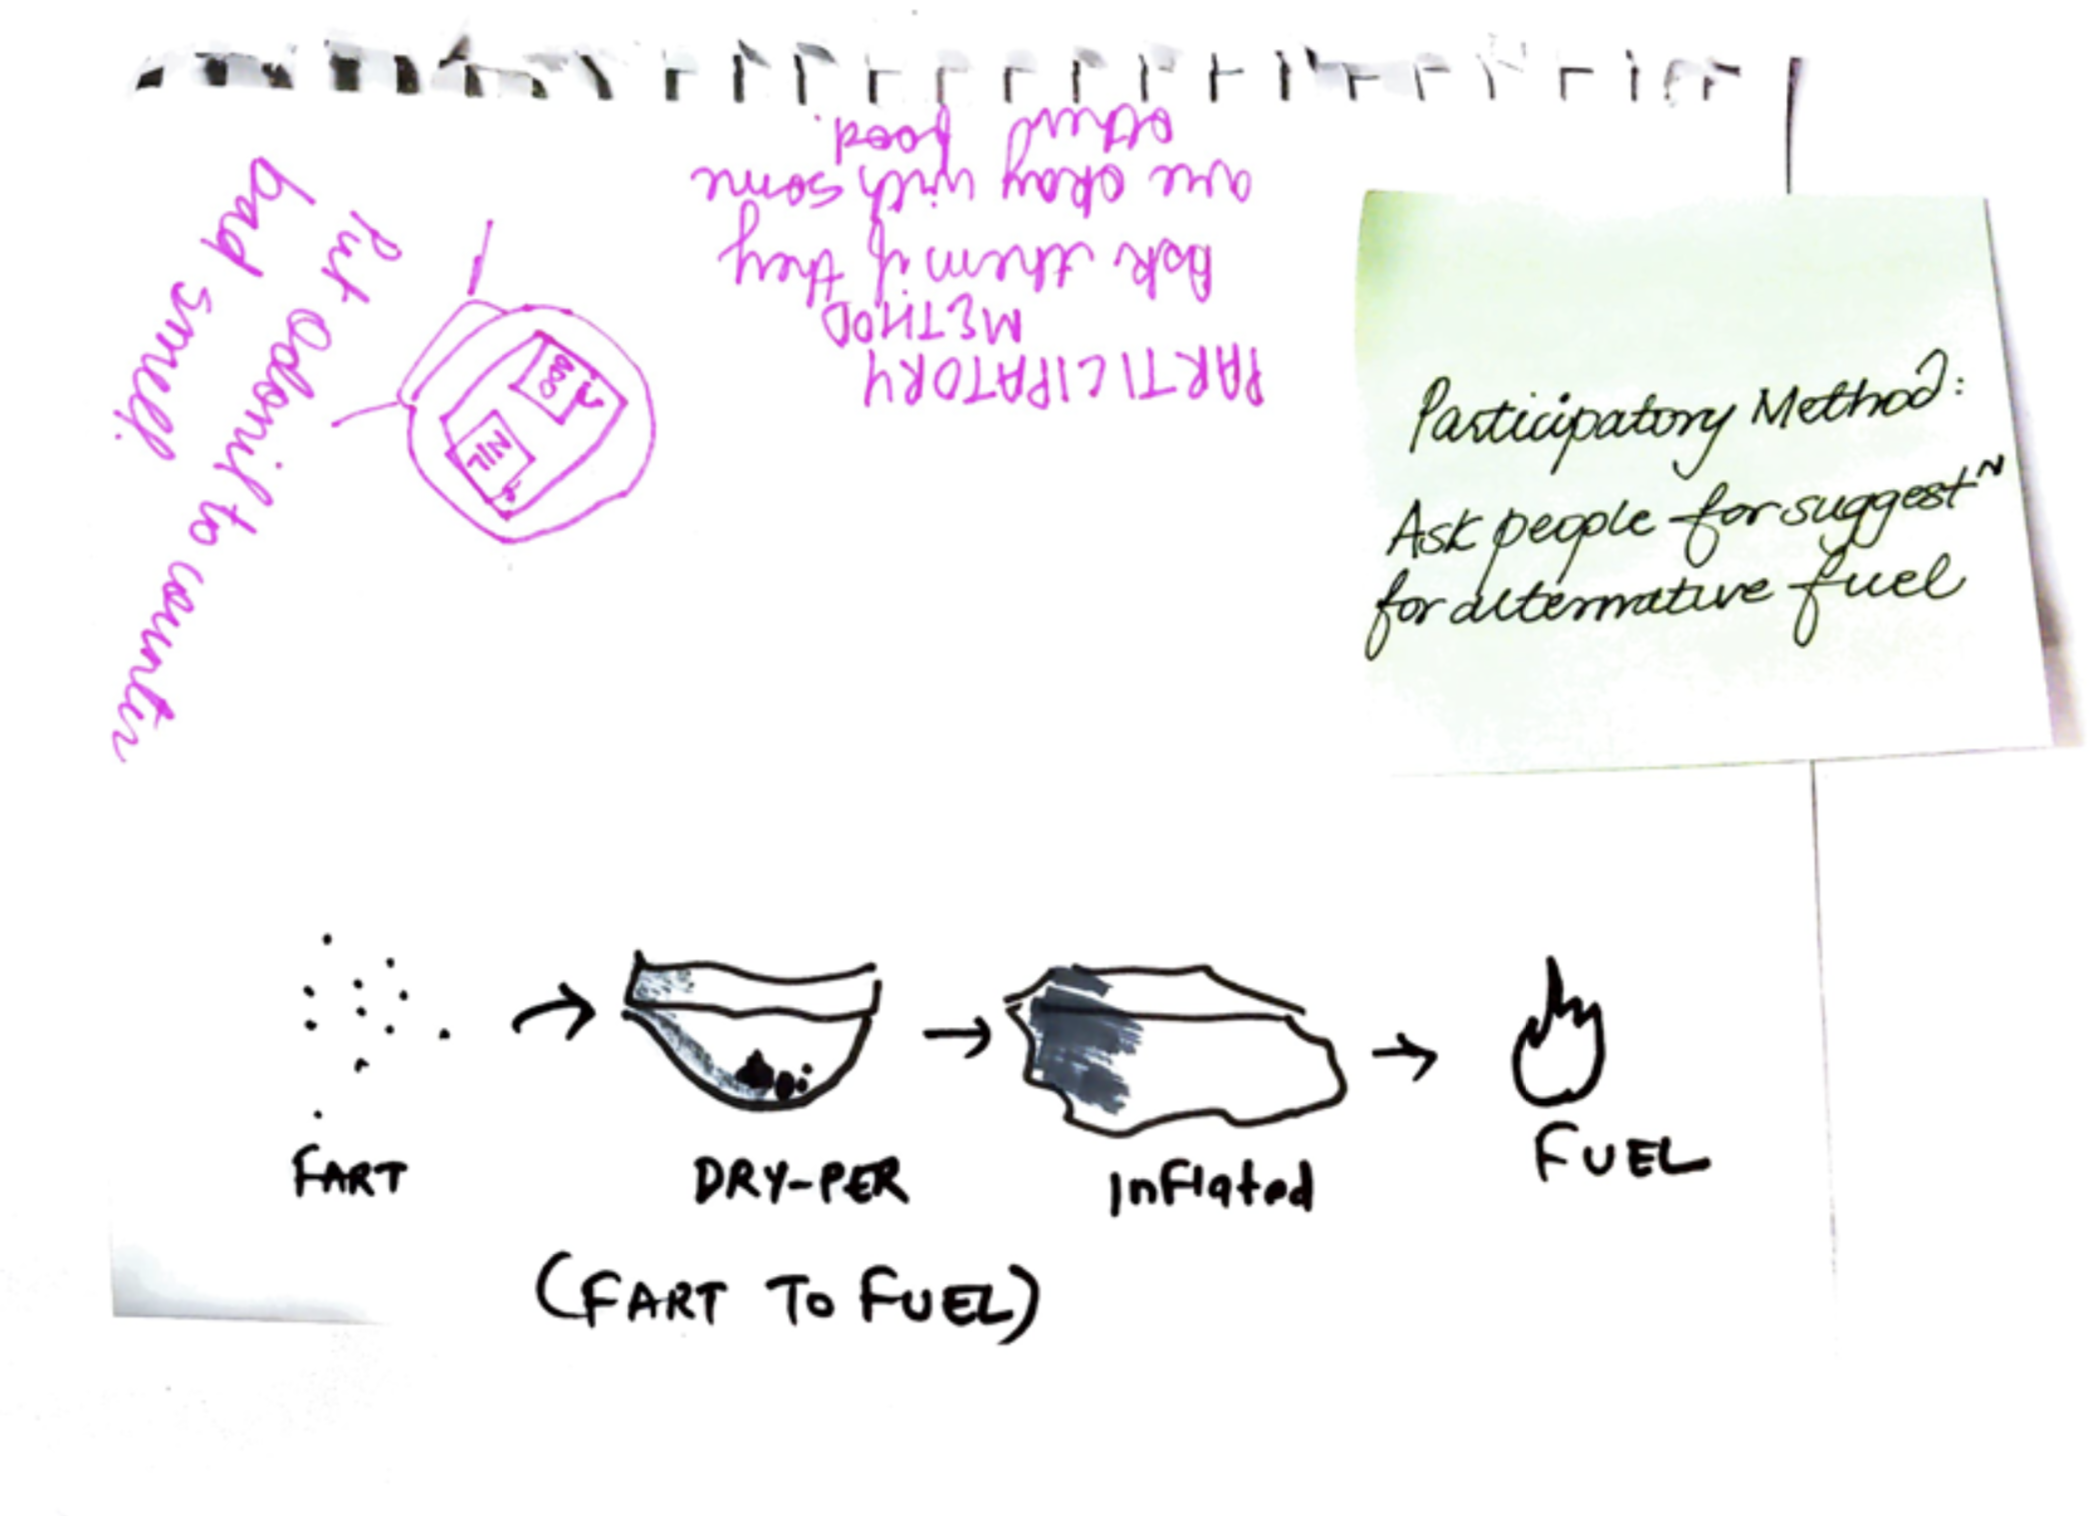 Put Odonil to counter
bad smell.
ODO
NIL
PARTICIPATORY
METHOD
Ask them if they
are okay with some
other food.
Participatory Method:
Ask people for suggestᴺ
for alternative fuel
FART
DRY-PER
Inflated
FUEL
(FART TO FUEL)